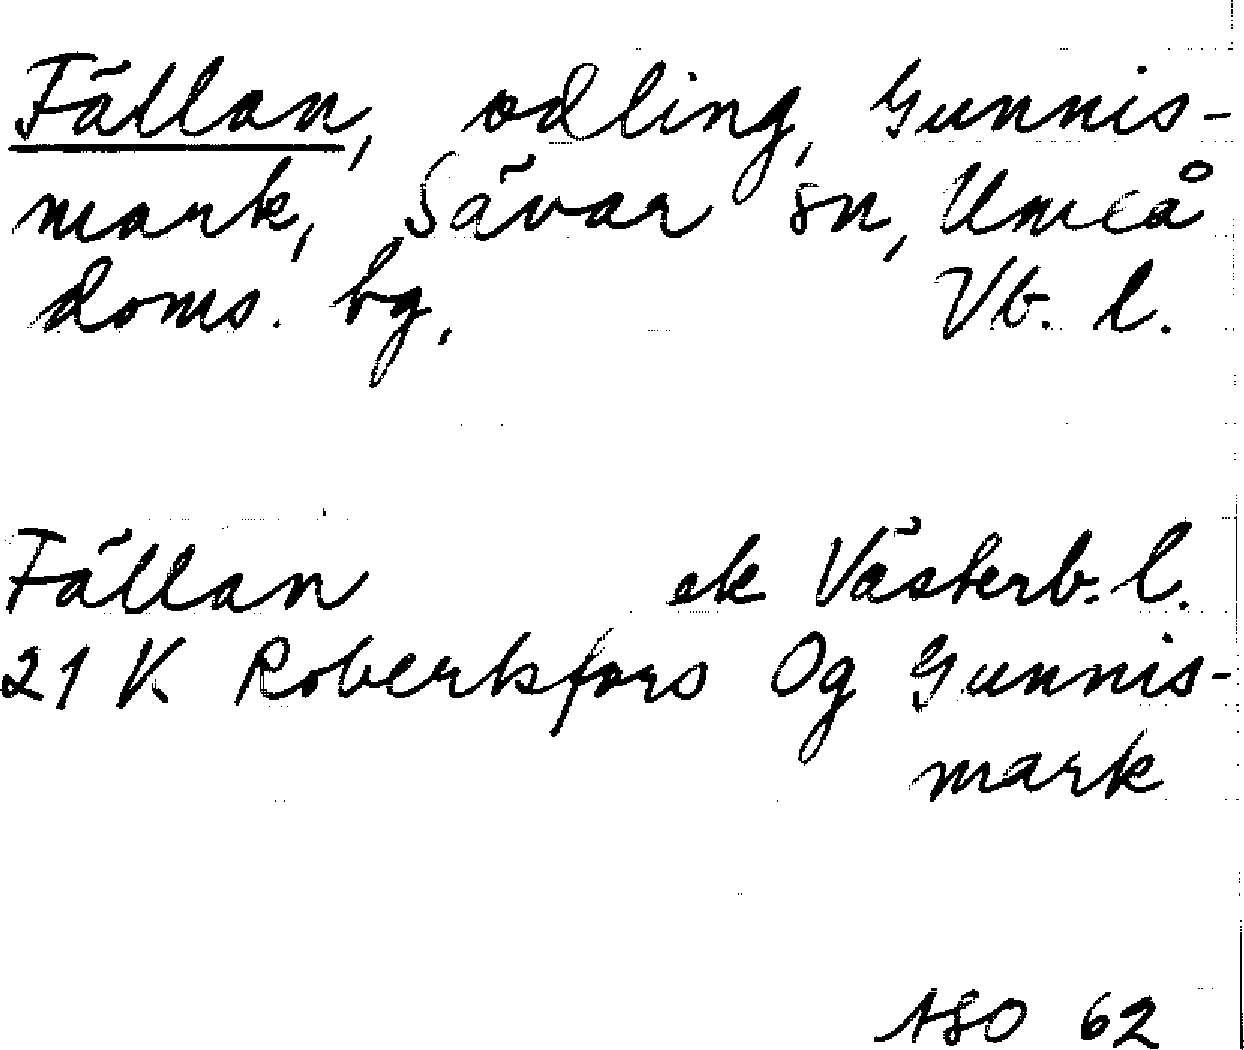 Fällan, odling, Gunnis-
mark, Sävar sn, Umeå
doms. bg. Vb. l.
Fällan ek Västerb. l.
21 K Robertsfors Og Gunnis-
mark
ASO 62